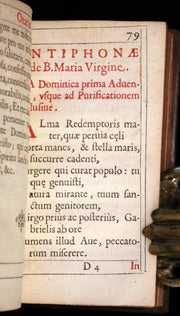 Oratio
79
NTIPHONÆ
de B. Maria Virgine.
A Dominica prima Aduen-
, vsque ad Purificationem
lusiue.
ALma Redemptoris ma-
ter, quæ peruia cęli
orta manes, & stella maris,
succurre cadenti,
urgere qui curat populo: tu
quę genuisti,
atura mirante, tuum san-
ctum genitorem,
irgo prius ac posteriùs, Ga-
brielis ab ore
umens illud Aue, peccato-
rum miserere.
D 4
In